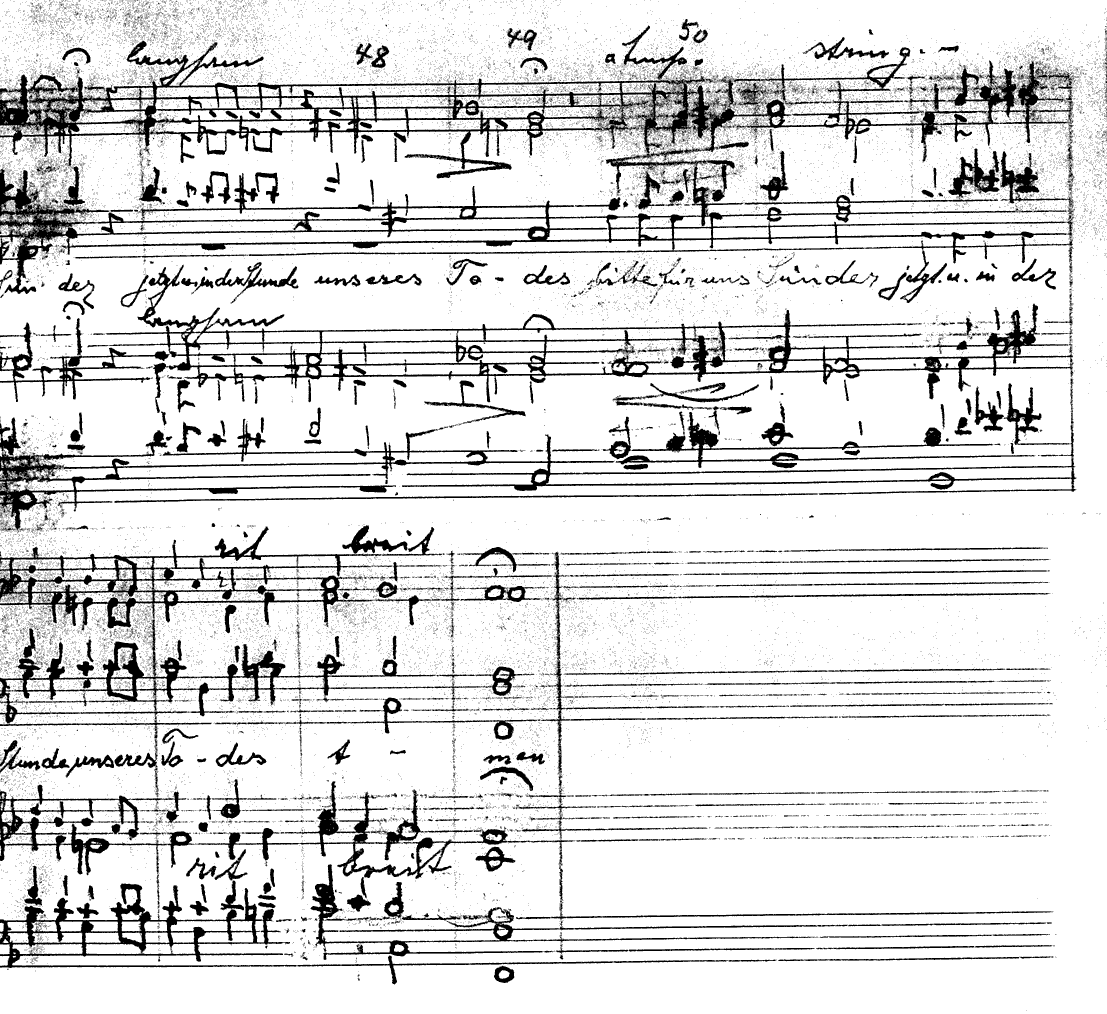 langsam 48 49 atemp. 50 string. -
Sün der jetzt u. in der Stunde unseres To - des bitte für uns Sünder jetzt. u. in der
langsam
rit breit
Stunde unseres To - des A - men
rit breit